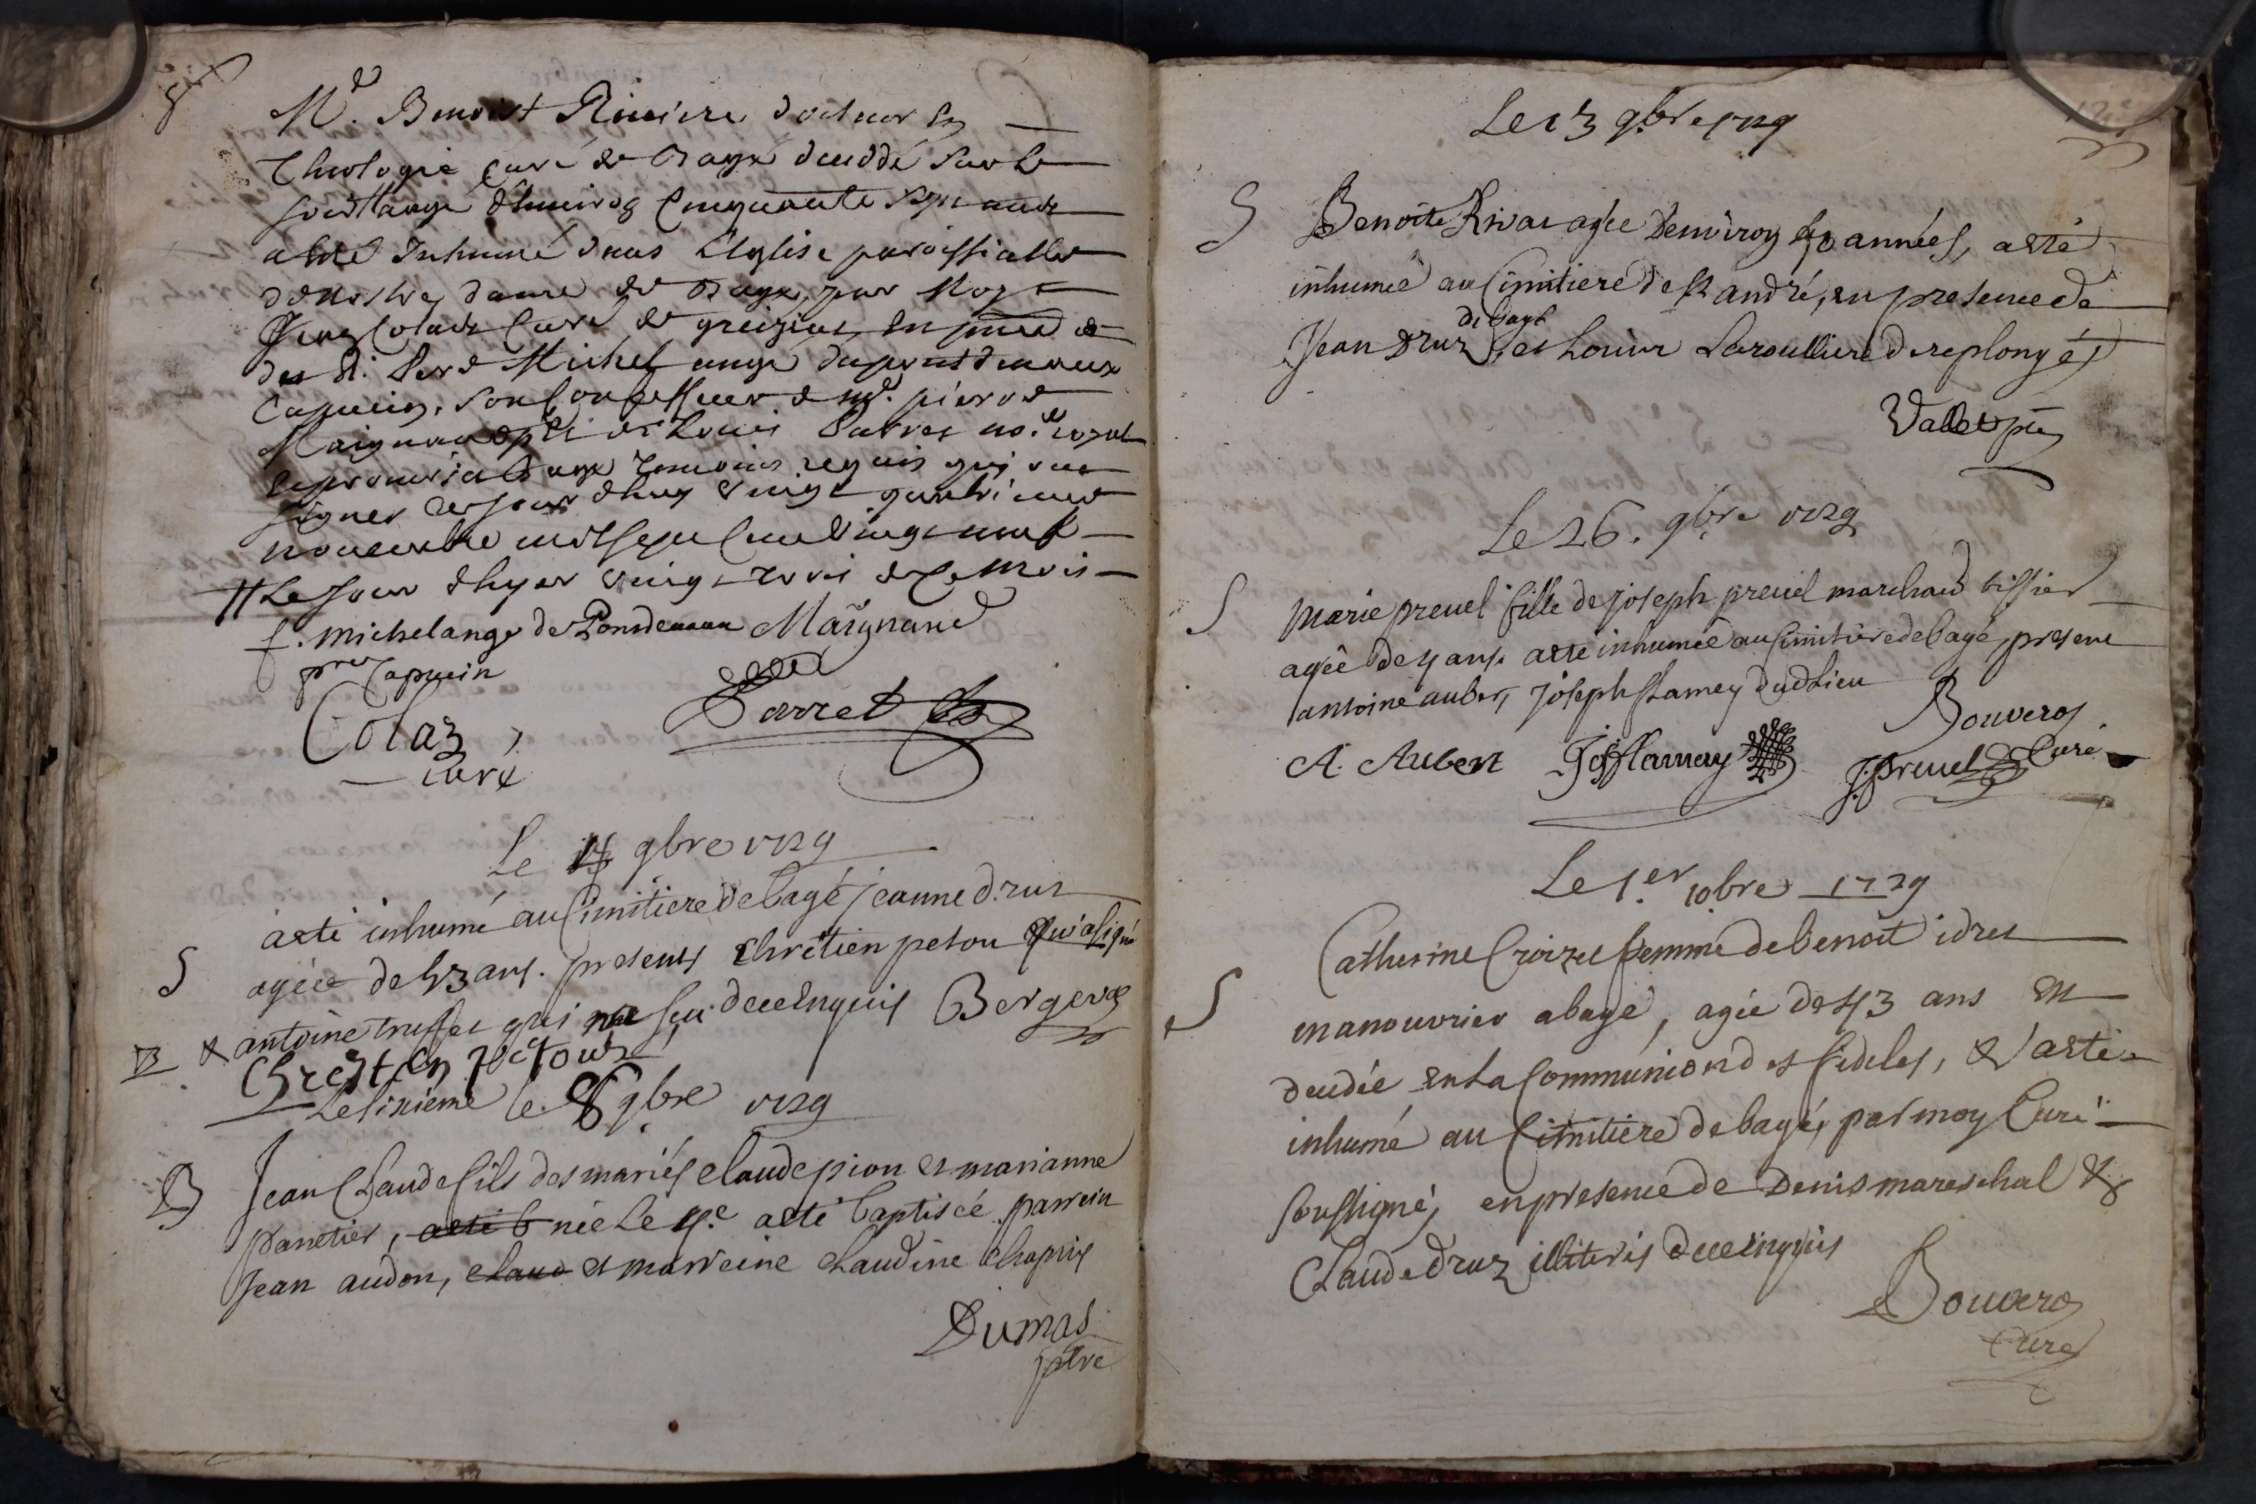 Mr. Benoist Riviere docteur en
Theologie Curé de Bagé decedé sur le
soir aagé d'environ Cinquante sept ans
a esté Inhumé dans L'Eglise paroissialle
de nostre dame de Bagé, par Moy
Jean Colas Curé de en pnce
du R. Pere Michel ange du pont de vaux
Capucin, son Confesseur & mr. pierre
Maignand et Louis Parret no.re royal
Bagé Temoins requis qui ont
signer ce jour d'huy vingt quatrieme
novembre mil sept Cent vingt neuf
// Le jour d'hyer vingt trois de Ce Mois
f. michelange de Pondevaux Maignand
pre Capucin
Parret
Colas
curé
Le 4 9bre 1729
S aeté inhumé au Cimitiere de bagé jeanne druz
agéé de 43 ans. presents Chrétien petou & qui a signé
& antoine truffet qui ne sçu de ce Enquis Bergeron
B Chrestien petour
Le sixieme le 8 9bre 1729
B Jean Claude fils des mariés claude pion et marianne
panetier, aeté b née Le 4.e aeté baptiséé parrein
Jean audon, claud et marreine claudine chapuis
Dumas
ptre
Le 13 9bre 1729
S Benoite Rivat agée Denviron 40 années, aeté
inhumée au Cimitiere de St andré, en presence de
de bagé
Jean Druz, et Louis Laroulliere de replongés
Vallet ptre
Le 26. 9bre 1729
S Marie preuel fille de joseph preuel marchand tissier
agéé de 4 ans. aeté inhumée au Cimitiere de bagé, present
antoine auber, joseph flamey dud Lieu
Bouveron
A. Aubert Jos flamay J. preuel Curé
Le 1.er 10bre 1729
S Catherine Croizet femme de benoit idret
manouvrier a bagé, agée de 43 ans Est
decedée en La Communion des fideles, & aeté
inhumé au Cimitiere de bagé, par moy Curé
soussigné, en presence de Denis mareschal &
Claude druz illiterés de ce Enquis
Bouveron
Curé